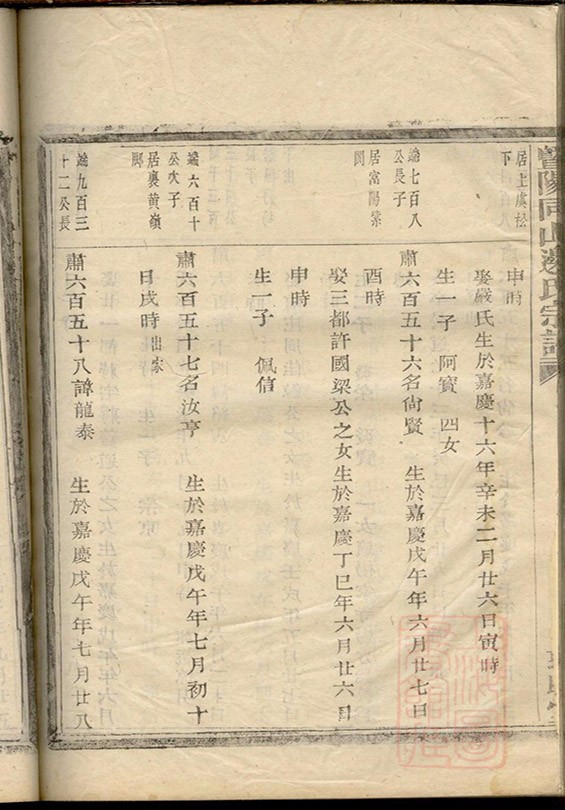 暨陽同山邊氏宗譜
居上虞松
下
申時
娶嚴氏生於嘉慶十六年辛未二月廿六日寅時
生一子 阿寶 四女
端七百八
公長子
居富陽紫
閬
肅六百五十六名尚賢 生於嘉慶戊午年六月廿七日
酉時
娶三都許國梁公之女生於嘉慶丁巳年六月廿六日
申時
生一子 佩信
端六百十
公次子
居裏黃嶺
脚
肅六百五十七名汝亨 生於嘉慶戊午年七月初十
日戌時出家
端九百三
十二公長
肅六百五十八諱龍泰 生於嘉慶戊午年七月廿八